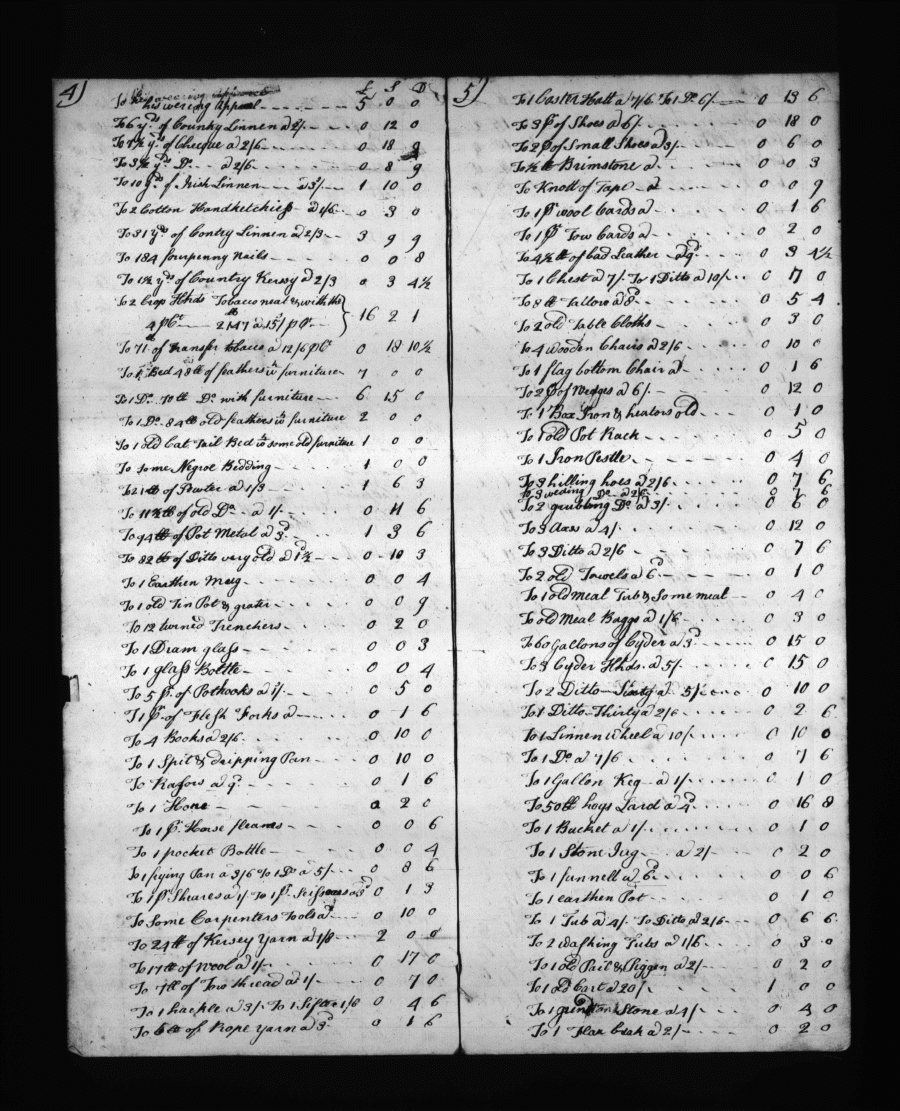 4)
£ S D
To his wering Apparel 5 0 0
To 6 yds of Country Linnen a 2/- 0 12 0
To 7½ yds of Checque a 2/6 0 18 9
To 3½ yds Do a 2/6 0 8 9
To 10 yds of Irish Linnen a 3/- 1 10 0
To 2 Cotton Handketchiefs a 1/6 0 3 0
To 31 yds of Contry Linnen a 2/3 3 9 9
To 184 fourpenny Nails 0 0 8
To 1½ yds of Country Kersey a 2/3 0 3 4½
To 2 Crop Hhds Tobacco neat & with the
4 pCt 2147 a 15/ pCt 16 2 1
To 71 lb of transfer tobacco a 12/6 pCt 0 18 10½
To 1 Bed 48 lb of feathers wth furniture 7 0 0
To 1 Do 70 lb Do with furniture 6 15 0
To 1 Do 84 lb old feathers wth furniture 2 0 0
To 1 old Cat Tail Bed wth some old furniture 1 0 0
To some Negroe Bedding 1 0 0
To 21 lb of Pewter a 1/3 1 6 3
To 11½ lb of old Do a 1/- 0 11 6
To 94 lb of Pot Metal a 3d 1 3 6
To 82 lb of Ditto very old a 1d½ 0 10 3
To 1 Earthen Mug 0 0 4
To 1 old Tin Pot & grater 0 0 9
To 12 turned Trenchers 0 2 0
To 1 Dram glass 0 0 3
To 1 glass Bottle 0 0 4
To 5 pr of Pothooks a 1/- 0 5 0
To 1 pr of Flesh Forks a 0 1 6
To 4 Books a 2/6 0 10 0
To 1 Spit & dripping Pan 0 10 0
To 2 Rasors a 9d 0 1 6
To 1 Hone 0 2 0
To 1 pr Horse fleams 0 0 6
To 1 pocket Bottle 0 0 4
To 1 frying Pan a 3/6 To 1 Do a 5/- 0 8 6
To 1 pr Sheares a 1/- To 1 pr Scissars a 3d 0 1 3
To Some Carpenters Tools a 0 10 0
To 24 lb of Kersey Yarn a 1/8 2 0 0
To 17 lb of Wool a 1/- 0 17 0
To 7 lb of Tow thread a 1/- 0 7 0
To 1 hackle a 3/- To 1 Sifter 1/6 0 4 6
To 6 lb of Rope Yarn a 3d 0 1 6
5)
To 1 Caster Hatt a 7/6 To 1 Do 6/- 0 13 6
To 3 pr of Shoes a 6/- 0 18 0
To 2 pr of Small Shoes a 3/- 0 6 0
To ½ lb Brimstone a 0 0 3
To Knott of Tape a 0 0 9
To 1 pr wool Cards a 0 1 6
To 1 pr Tow Cards a 0 2 0
To 4½ lb of bad Leather a 9d 0 3 4½
To 1 Chest a 7/- To 1 Ditto a 10/- 0 17 0
To 8 lb Tallow a 8d 0 5 4
To 2 old Table Cloths 0 3 0
To 4 wooden Chairs a 2/6 0 10 0
To 1 flag bottom Chair a 0 1 6
To 2 pr of Wedges a 6/- 0 12 0
To 1 Box Iron & heators old 0 1 0
To 1 old Pot Rack 0 5 0
To 1 Iron Pestle 0 4 0
To 3 hilling hoes a 2/6 0 7 6
To 3 weding Do a 2/6 0 7 6
To 2 grubbing Do a 3/- 0 6 0
To 3 Axes a 4/- 0 12 0
To 3 Ditto a 2/6 0 7 6
To 2 old Towels a 6d 0 1 0
To 1 old Meal Tub & Some meal 0 4 0
To old Meal Baggs a 1/6 0 3 0
To 60 Gallons of Cyder a 3d 0 15 0
To 3 Cyder Hhds a 5/- 0 15 0
To 2 Ditto Sixty a 5/- 0 10 0
To 1 Ditto Thirty a 2/6 0 2 6
To 1 Linnen Wheel a 10/- 0 10 0
To 1 Do a 7/6 0 7 6
To 1 Gallon Keg a 1/- 0 1 0
To 50 lb hogs Lard a 4d 0 16 8
To 1 Bucket a 1/- 0 1 0
To 1 Stone Jug a 2/- 0 2 0
To 1 funnell a 6d 0 0 6
To 1 earthen Pot 0 1 0
To 1 Tub a 4/- To Ditto a 2/6 0 6 6
To 2 washing Tubs a 1/6 0 3 0
To 1 old Pail & Piggen a 2/- 0 2 0
To 1 old Cart a 20/- 1 0 0
To 1 grind Stone a 4/- 0 4 0
To 1 Flax brak a 2/- 0 2 0